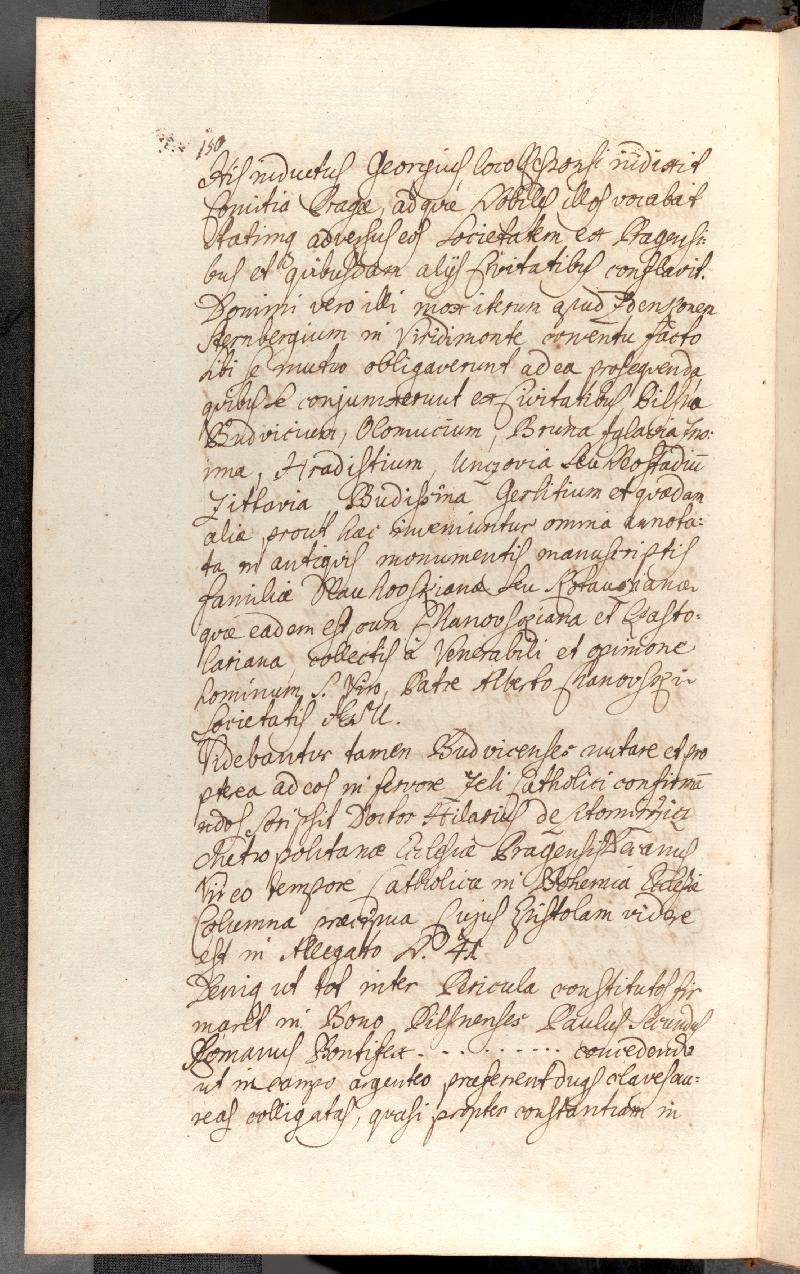 150
His inductus Georgius loco Responsi indixit
Comitia Pragæ, ad quæ Nobiles illos vocabat
statimq adversus eos Societatem ex Pragensi:
bus et quibusdam alijs Civitatibus conflavit.
Domini vero illi mox iterum apud Zdenkonem
Sternbergium in Viridimonte conventu facto
sibi se mutuo obligaverunt ad ea prosequenda
quibus se conjunxerunt ex Civitatibus Pilsna
Budvicium, Olomucium, Bruna Iglavia Zno:
ima, Hradistium, Unczovia seu Neostadiũ
Zittavia Budissina Gerlitium et quædam
aliæ, prout hæc inveniuntur omnia annota:
ta in antiquis monumentis manuscriptis
familiæ
quæ eadem est, cum Chanovskiana et
lariana collectis à Venerabili et opinione
hominum S. Viro, Patre Alberto Chanovskij
Societatis JESU.
Videbantur tamen Budvicenses nutare et pro
pterea ad eos in fervore Zeli Catholici confirmã
ndos scripsit Doctor Hilarius de
Metropolitanæ Ecclesiæ Pragensis Decanus
Vir eo tempore Catholicæ in Bohemia Ecclesiæ
Columna præcipua Cujus Epistolam videre
est in Allegato N.º
Deniq ut tot inter Pericula constitutos fir
maret in Bono Pilsnenses Paulus Secundus
Romanus Pontifex . . . . . . . . . . concedendo
ut in campo argenteo præferent duas claves au:
reas colligatas, quasi propter constantiam in